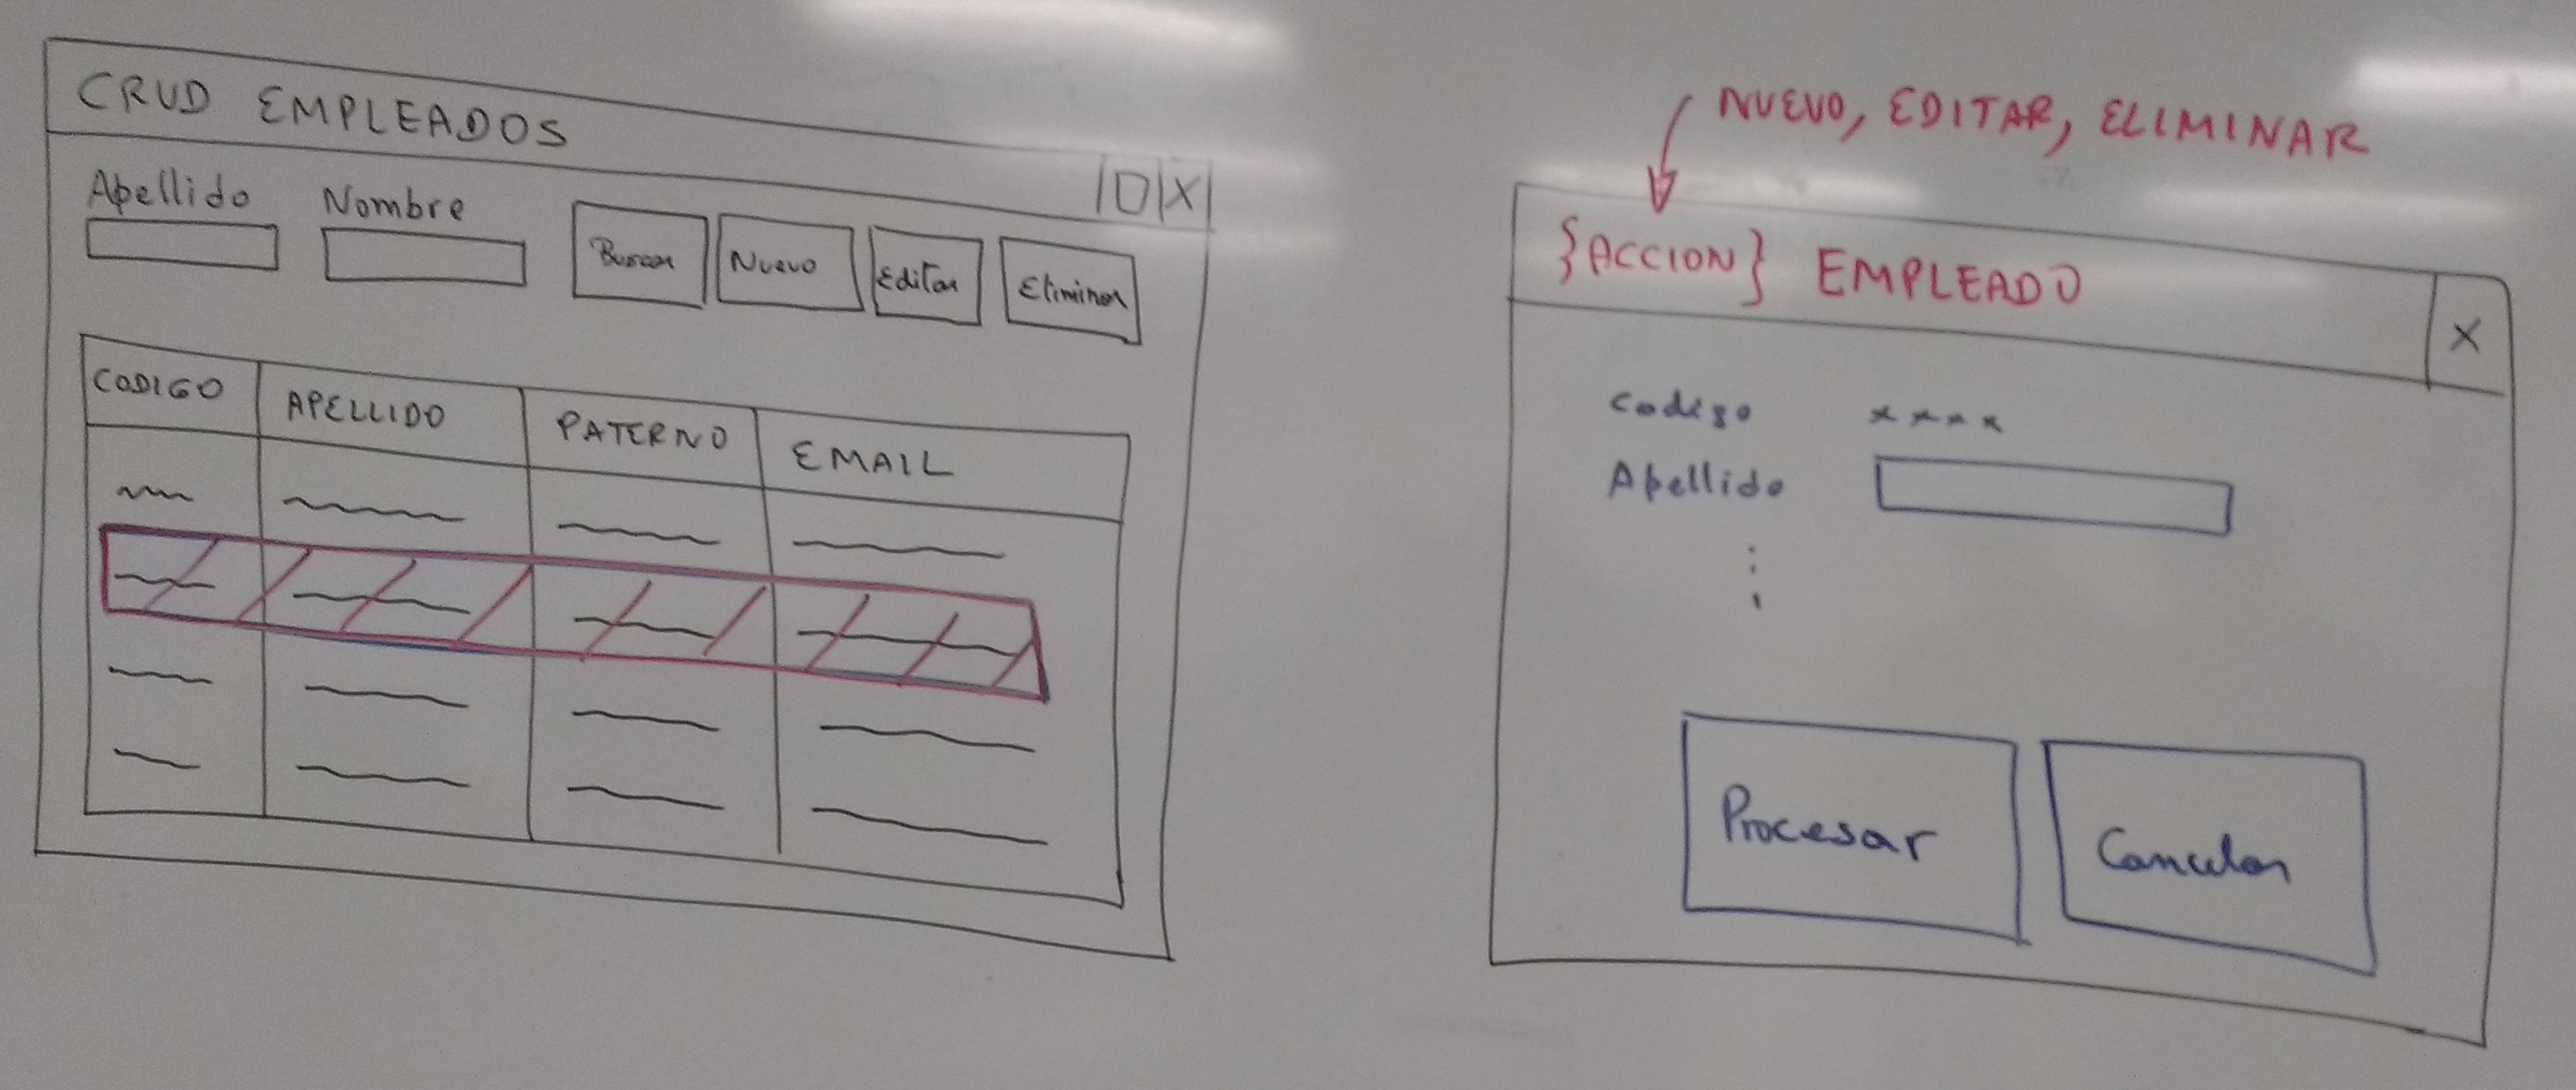 CRUD EMPLEADOS
X
Apellido Nombre
Buscar Nuevo Editar Eliminar
CODIGO APELLIDO PATERNO EMAIL
NUEVO, EDITAR, ELIMINAR
{ACCION} EMPLEADO
X
Codigo xxxx
Apellido
Procesar Cancelar